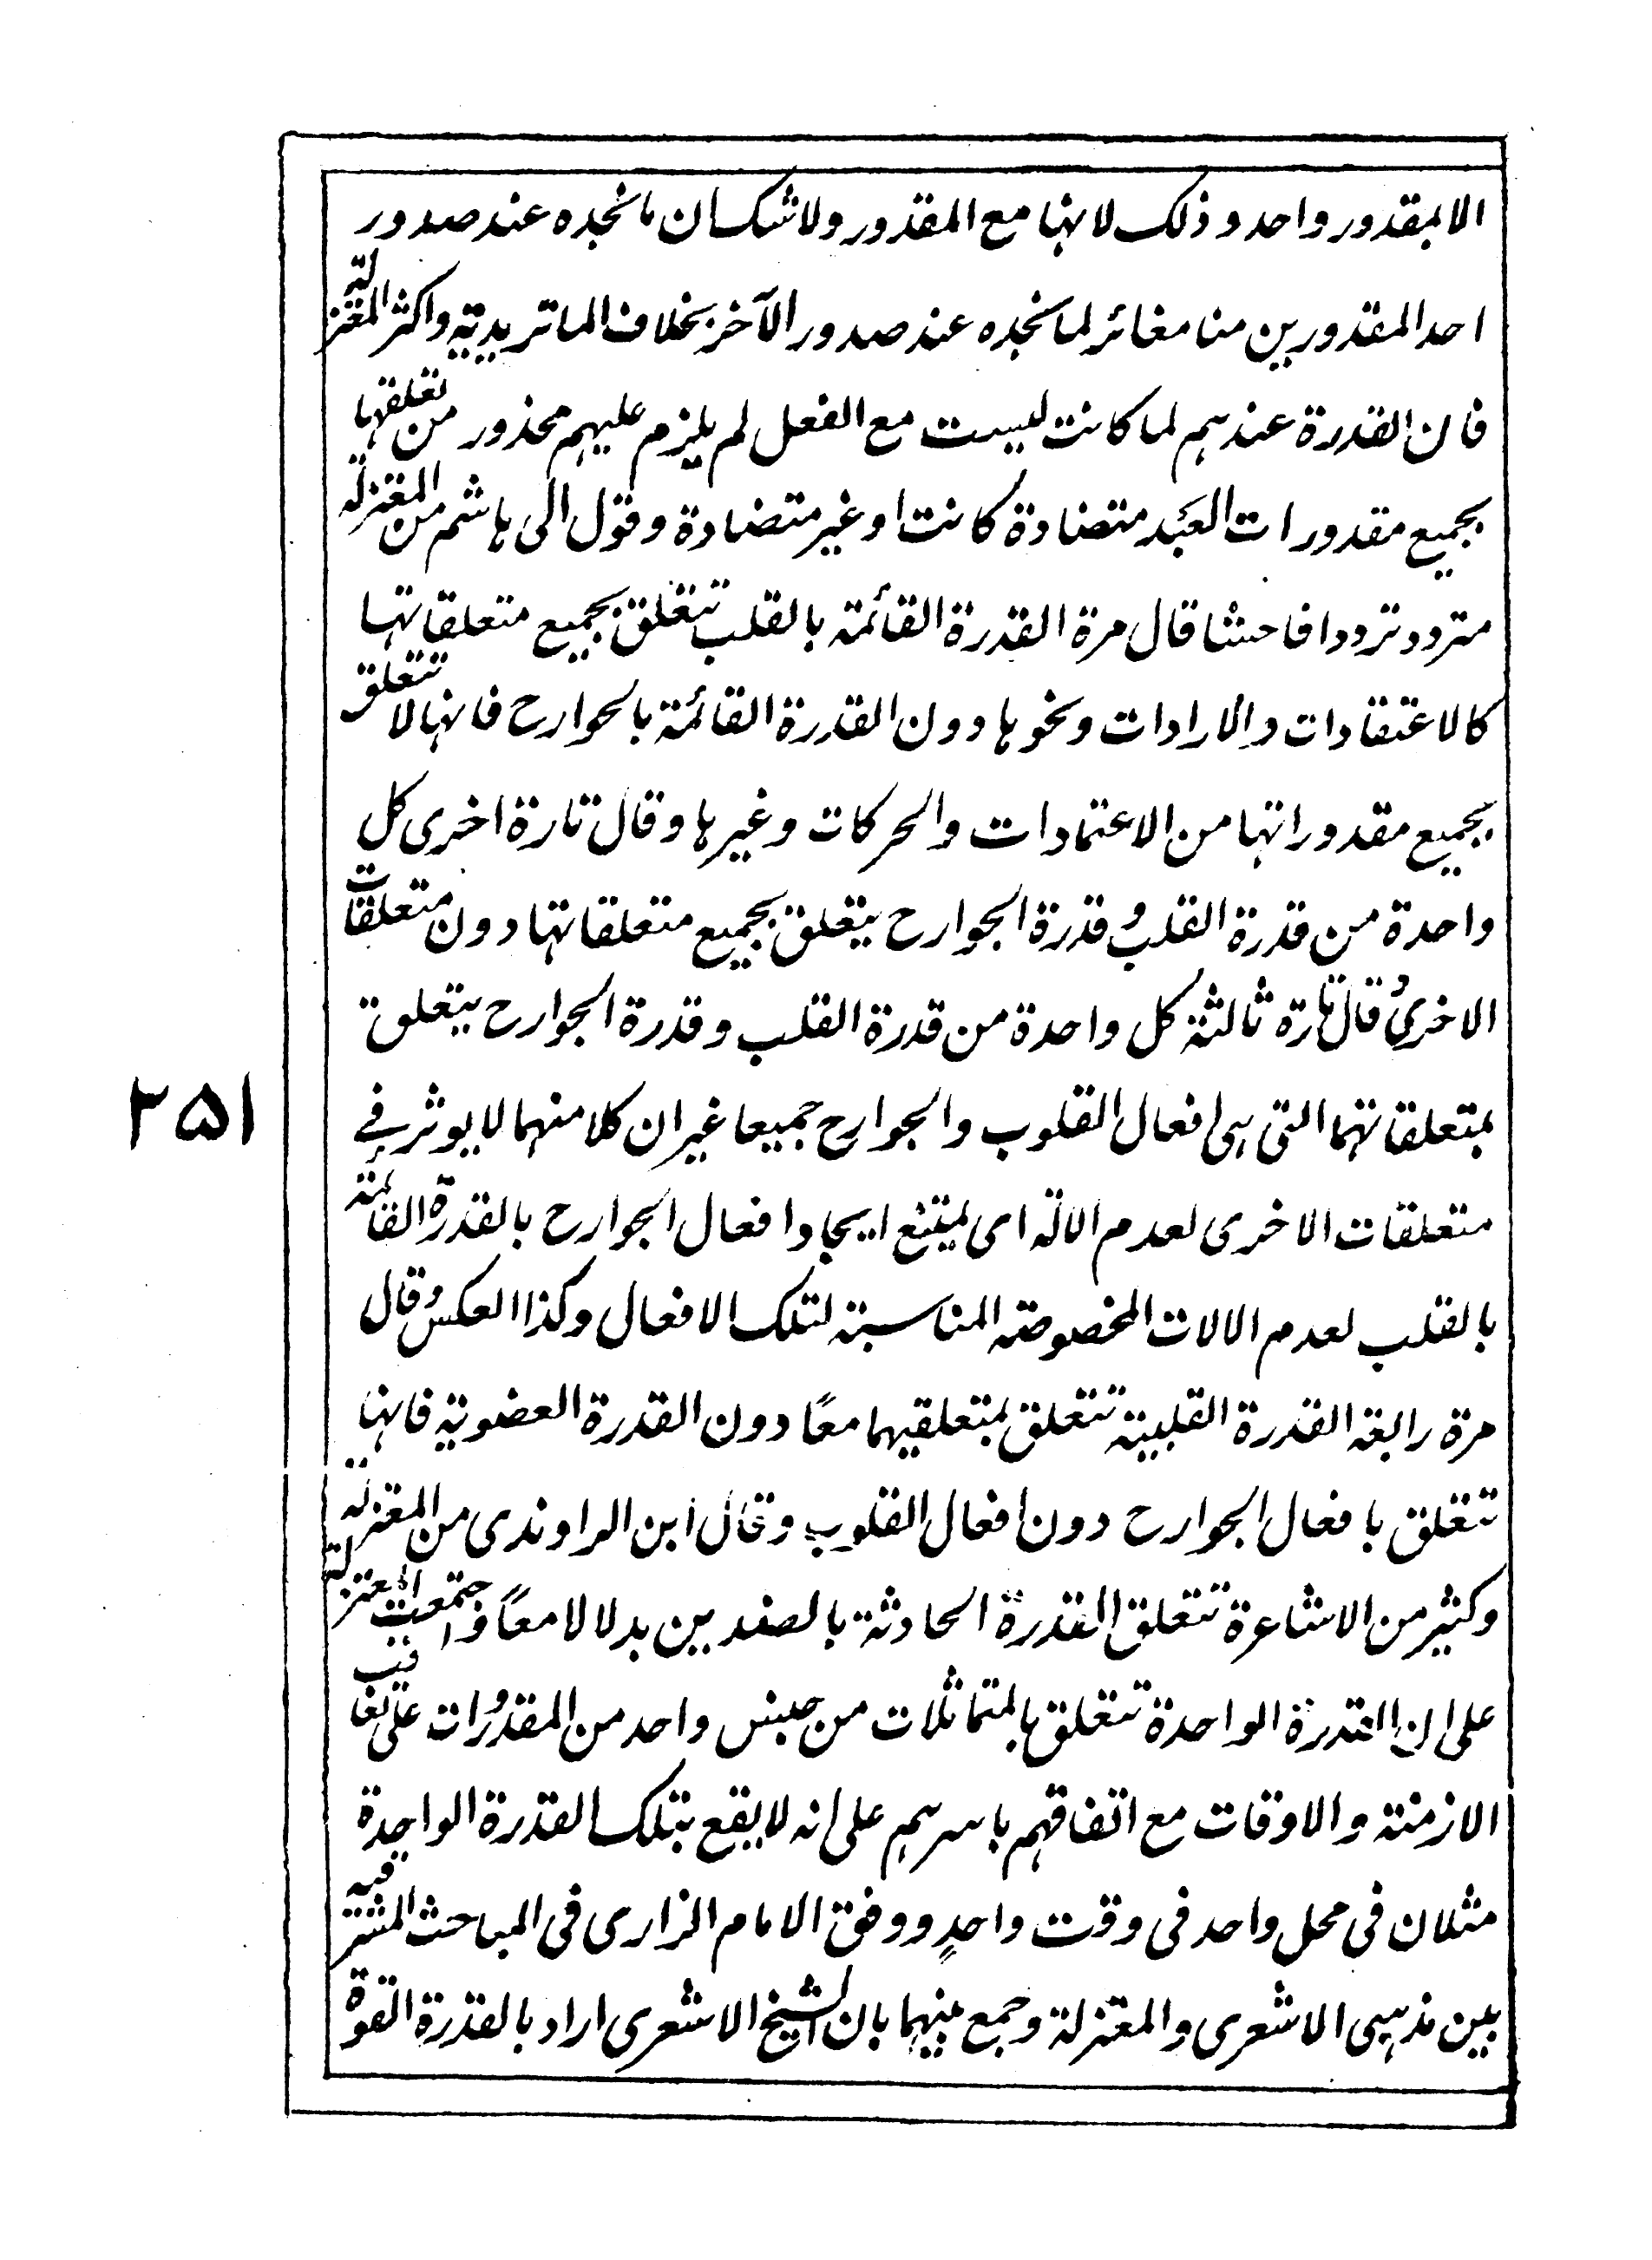 الا بمقدور واحد و ذلک لانها مع المقدور ولا شک ان ما نجده عند صدور
احد المقدورین منا مغائر لما نجده عند صدور الآخر بخلاف الماتریدیة واکثر المعتزلة
فان القدرة عندہم لما کانت لیست مع الفعل لم یلزم علیہم محذور من تعلقہا
بجمیع مقدورات العبد متضادة کانت او غیر متضادة وقول ابی ہاشم من المعتزلة
متردد ترددا فاحشا قال مرة القدرة القائمة بالقلب تتعلق بجمیع متعلقاتہا
کالاعتقادات والارادات ونحوہا دون القدرة القائمة بالجوارح فانہا لا تتعلق
بجمیع مقدوراتہا من الاعتمادات والحرکات وغیرہا وقال تارة اخری کل
واحدة من قدرة القلب و قدرة الجوارح یتعلق بجمیع متعلقاتہا دون متعلقات
الاخری و قال تارة ثالثة کل واحدة من قدرة القلب وقدرة الجوارح یتعلق
بمتعلقاتہما التی ہی افعال القلوب والجوارح جمیعا غیر ان کلا منہما لا یوثر فی
متعلقات الاخری لعدم الالة ای یمتنع ایجاد افعال الجوارح بالقدرة القائمة
بالقلب لعدم الالات المخصوصة المناسبة لتلک الافعال وکذا العکس و قال
مرة رابعة القدرة القلبیة تتعلق بمتعلقیہما معًا دون القدرة العضویة فانہا
تتعلق بافعال الجوارح دون افعال القلوب وقال ابن الراوندی من المعتزلة
وکثیر من الاشاعرة تتعلق القدرة الحادثة بالضدین بدلا لا معًا و اجتمعت المعتزلة
علی ان القدرة الواحدة تتعلق بالمتماثلات من جنس واحد من المقدورات علی تعاقب
الازمنة والاوقات مع اتفاقہم باسرہم علی انہ لا یقع بتلک القدرة الواحدة
مثلان فی محل واحد فی وقت واحدٍ ووفق الامام الرازی فی المباحث المشرقیة
بین مذہبی الاشعری والمعتزلة وجمع بینہما بان الشیخ الاشعری اراد بالقدرة القوة
۲۵۱